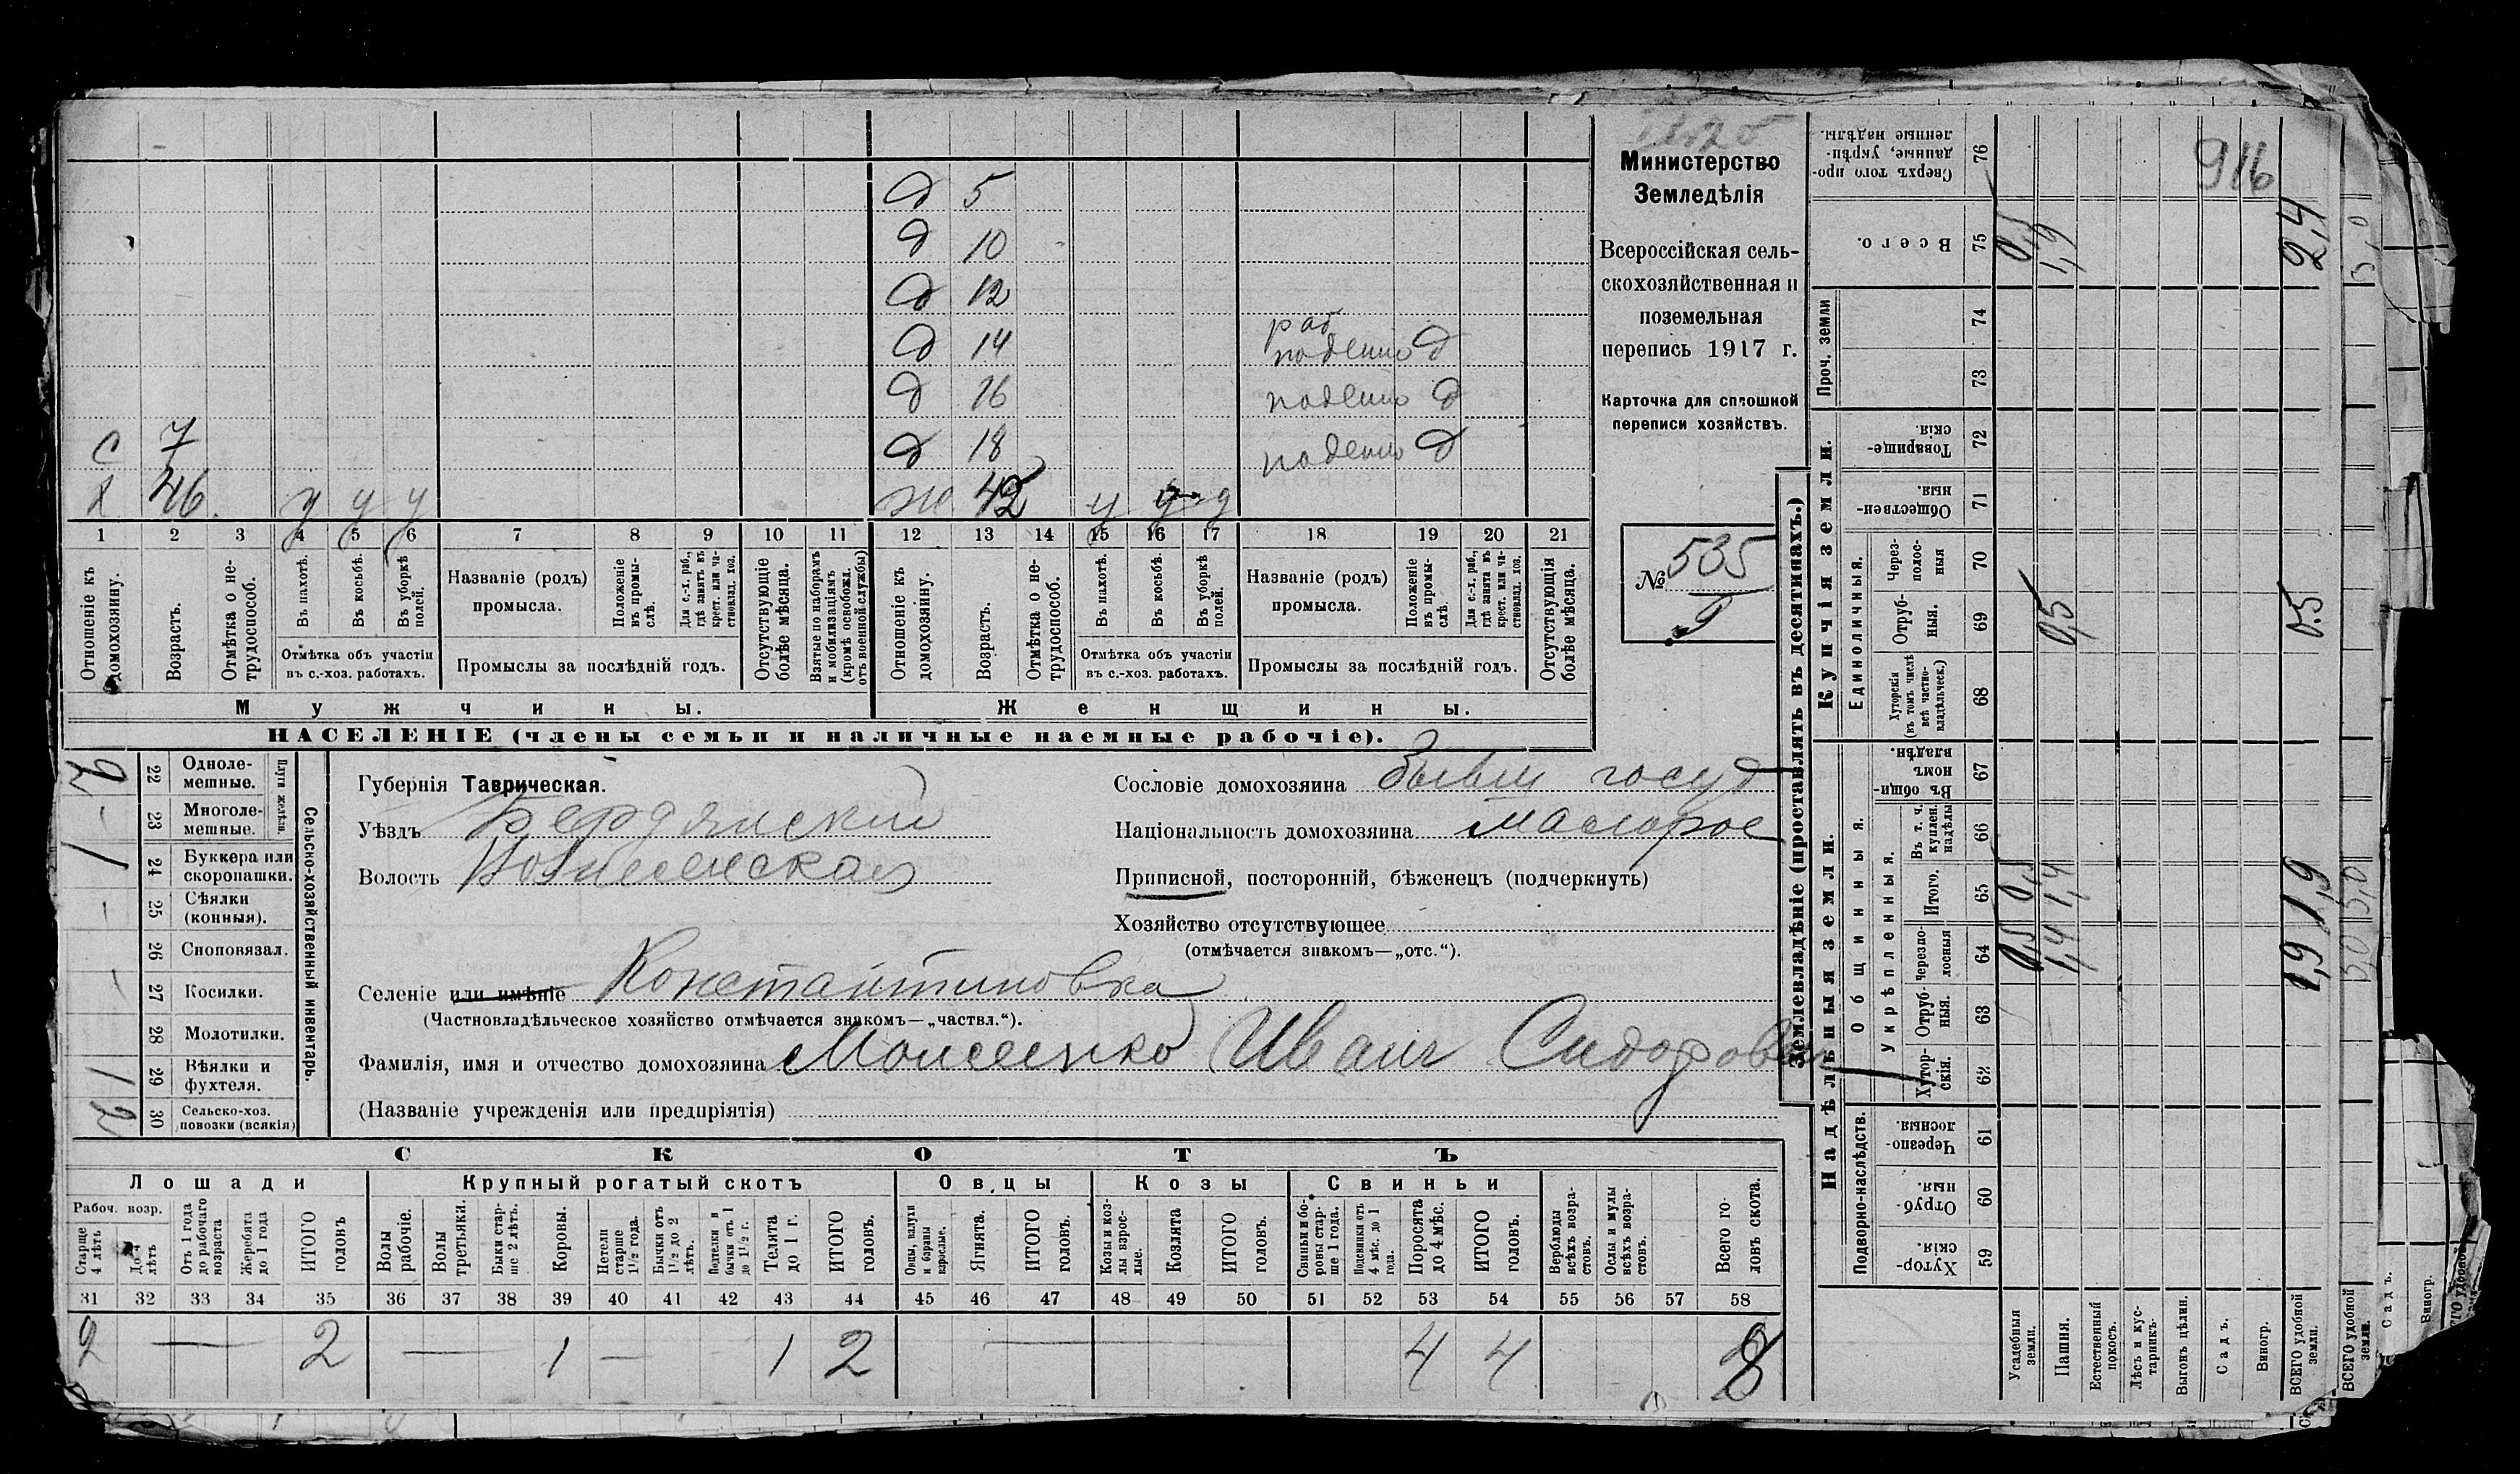 916
Министерство
Земледѣлія
Всероссійская сель-
скохозяйственная и
поземельная
перепись 1917 г.
Карточка для сплошной
переписи хозяйствъ.
№ 535
9
д 5
д 10
д 12
д 14 раб поденно д
д 16 поденно д
с 7 д 18 поденно д
х 46. у у у ж 42 у у у
1 2 3 4 5 6 7 8 9 10 11 12 13 14 15 16 17 18 19 20 21
Отношеніе къ домохозяину.
Возрастъ.
Отмѣтка о не-трудоспособ.
Въ пахотѣ.
Въ косьбѣ.
Въ уборкѣ полей.
Отмѣтка объ участіи въ с.-хоз. работахъ.
Названіе (родъ) промысла.
Положеніе въ промы-слѣ.
Для с.-х. раб., гдѣ занятъ въ крест. или ча-стновлад. хоз.
Промыслы за послѣдній годъ.
Отсутствующіе болѣе мѣсяца.
Взятые по наборамъ и мобилизаціямъ (кромѣ освобожд. отъ военной службы)
Отношеніе къ домохозяину.
Возрастъ.
Отмѣтка о не-трудоспособ.
Въ пахотѣ.
Въ косьбѣ.
Въ уборкѣ полей.
Отмѣтка объ участіи въ с.-хоз. работахъ.
Названіе (родъ) промысла.
Положеніе въ промы-слѣ.
Для с.-х. раб., гдѣ занята въ крест. или ча-стновлад. хоз.
Промыслы за послѣдній годъ.
Отсутствующія болѣе мѣсяца.
Мужчины. Женщины.
НАСЕЛЕНІЕ (члены семьи и наличные наемные рабочіе).
Сельско-хозяйственный инвентарь.
Плуги желѣзн.
22 Одноле-мешные.
23 Многоле-мешные.
1 24 Буккера или скоропашки.
25 Сѣялки (конныя).
26 Сноповязал.
27 Косилки.
28 Молотилки.
1 29 Вѣялки и фухтеля.
2 30 Сельско-хоз. повозки (всякія)
Губернія Таврическая.
Уѣздъ Бердянскій
Волость Вознесенская
Сословіе домохозяина бывш госуд
Національность домохозяина малорос
Приписной, посторонній, бѣженецъ (подчеркнуть)
Хозяйство отсутствующее
(отмѣчается знакомъ—„отс.“).
Селеніе или имѣніе Константиновка
(Частновладѣльческое хозяйство отмѣчается знакомъ—„частвл.“).
Фамилія, имя и отчество домохозяина Моисеенко Иванъ Сидоров
(Названіе учрежденія или предпріятія)
СКОТЪ
Лошади Крупный рогатый скотъ Овцы Козы Свиньи
Рабоч. возр.
Старше 4 лѣтъ
До 4 лѣтъ
Отъ 1 года до рабочаго возраста
Жеребята до 1 года
ИТОГО головъ
Волы рабочіе.
Волы третьяки.
Быки стар-ше 2 лѣтъ.
Коровы.
Нетели старше 1½ года.
Бычки отъ 1½ до 2 лѣтъ.
Подтелки и бычки отъ 1 до 1½ г.
Телята до 1 г.
ИТОГО головъ.
Овцы, валухи и бараны взрослые.
Ягнята.
ИТОГО головъ.
Козы и коз-лы взрос-лые.
Козлята
ИТОГО головъ.
Свиньи и бо-ровы стар-ше 1 года.
Подсвинки отъ 4 мѣс. до 1 года.
Поросята до 4 мѣс.
ИТОГО головъ.
Верблюды всѣхъ возра-стовъ.
Ослы и мулы всѣхъ возра-стовъ.
Всего го-ловъ скота.
31 32 33 34 35 36 37 38 39 40 41 42 43 44 45 46 47 48 49 50 51 52 53 54 55 56 57 58
2 — 2 — 1 — 1 2 — 4 4 8
Землевладѣніе (проставлять въ десятинахъ.)
Надѣльныя земли. Купчія земли. Проч. земли
Подворно-наслѣдств. Общинныя. Единоличныя.
Укрѣпленныя.
Хутор-скія. 59
Отруб-ныя. 60
Черезпо-лосныя. 61
Хутор-скія. 62
Отруб-ныя. 63
Черезпо-лосныя 64
Итого. 65
Въ т. ч. куплен. надѣлы 66
Въ общи-номъ владѣн. 67
Хуторскія (въ томъ числѣ всѣ частно-владѣльческ.) 68
Отруб-ныя. 69
Через-полос-ныя 70
Обществен-ныя. 71
Товарище-скія. 72
73
74
Всего. 75
Сверхъ того про-данные, укрѣп-ленные надѣлы. 76
Усадебныя земли. 0,5 0,5 0,5
Пашня. 1,4 1,4 0,5 1,9
Естественный покосъ.
Лѣсъ и кус-тарникъ.
Выгонъ цѣлин.
Садъ.
Виногр.
ВСЕГО удобной земли. 1,9 1,9 0.5 2,4
ВСЕГО удобной земли. 5,0 5,0 5,0
Садъ.
Виногр.